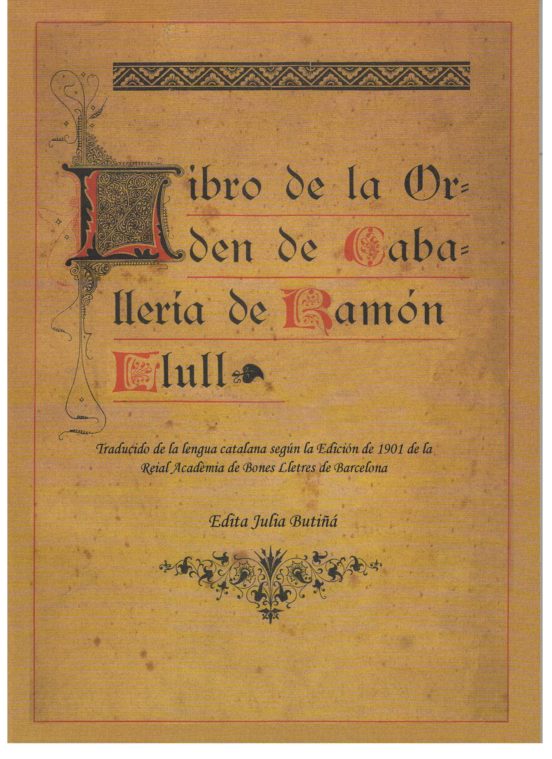 Libro de la Or=
den de Caba=
llería de Ramón
Llull
Traducido de la lengua catalana según la Edición de 1901 de la
Reial Acadèmia de Bones Lletres de Barcelona
Edita Julia Butiñá